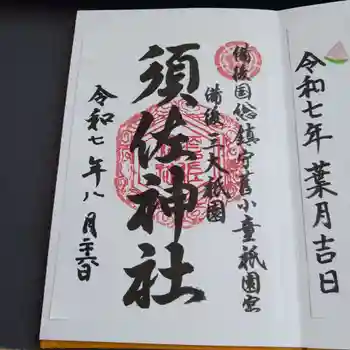 令和七年 葉月吉日
備後国総鎮守旧小童祇園宮
備後三大祇園
須佐神社
令和七年八月二十六日